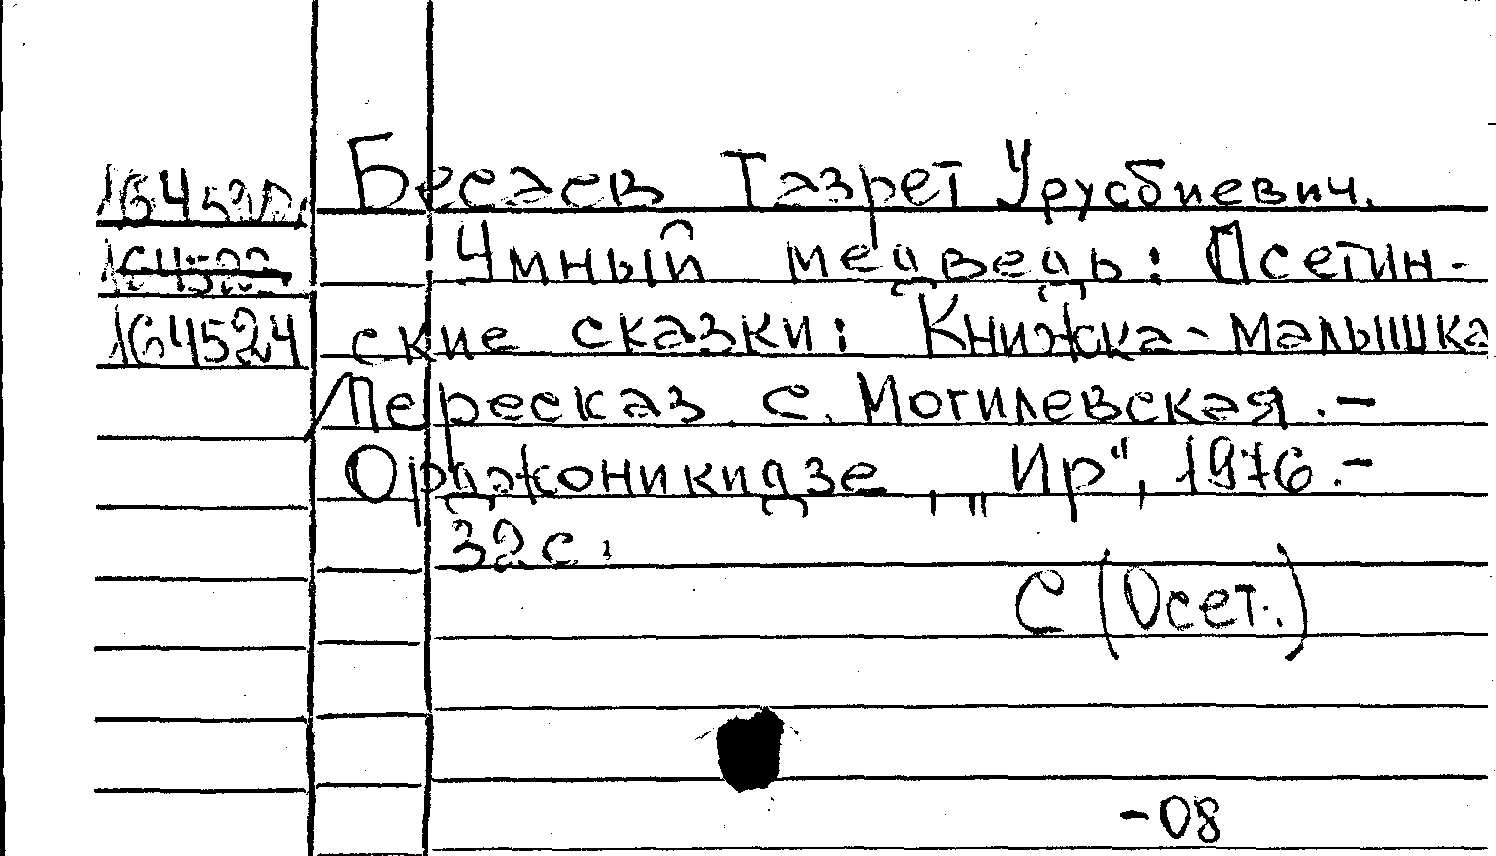 Бесаев Тазрет Урусбиевич.
Умный медведь: Осетин-
164524 ские сказки: Книжка-малышка
Пересказ С. Могилевская. -
Орджоникидзе, „Ир“, 1976. -
32 с.
С (Осет.)
-08